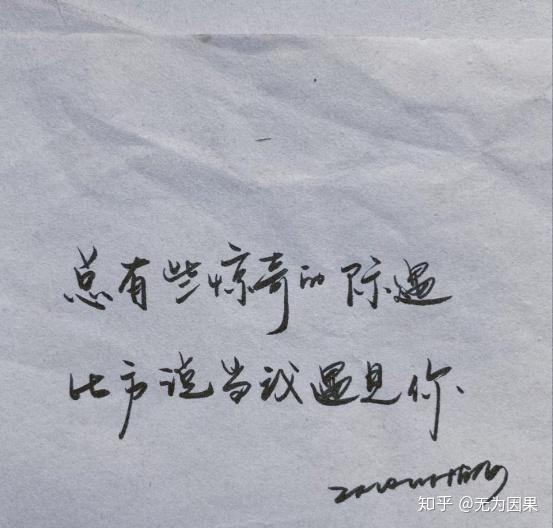 总有些惊奇的际遇
比方说当我遇见你
知乎 @无为因果